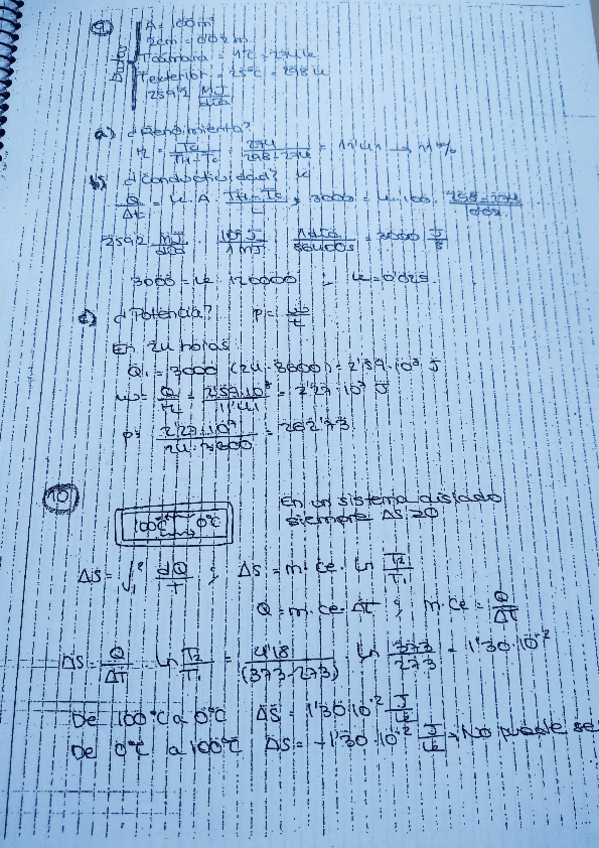 9
Datos
A = 100 m²
2cm = 0'02 m
Tcámara = 4°C = 277 K
Texterior = 25°C = 298 K
259'2 MJ/día
a) ¿Rendimiento?
η = Tc/(TH-Tc) = 274/(298-274) = 11'41 → 11%
b) ¿Conductividad? K
Q/Δt = K · A · (TH-Tc)/L ; 3000 = K · 100 · (298-274)/0'02
259'2 MJ/día · 10⁶J/1 MJ · 1 día/86400s = 3000 J/s
3000 = K · 120000 ; K = 0'025
c) ¿Potencia? P = W/t
En 24 horas:
Q₁ = 3000 (24 · 3600) = 2'59 · 10⁸ J
W = Q/η = 2'59·10⁸/11'41 = 2'27 · 10⁷ J
P = 2'27·10⁷/24·3600 = 262'73
10
100°C 0°C
En un sistema aislado
siempre ΔS ≥ 0
ΔS = ∫₁² dQ/T ; ΔS = m · ce · ln T₂/T₁
Q = m · ce · Δt ; m · ce = Q/ΔT
ΔS = Q/ΔT · ln T₂/T₁ = 4'18/(373-273) · ln 373/273 = 1'30 · 10⁻²
De 100°C a 0°C ΔS = 1'30 · 10⁻² J/K
De 0°C a 100°C ΔS = -1'30 · 10⁻² J/K → No puede se